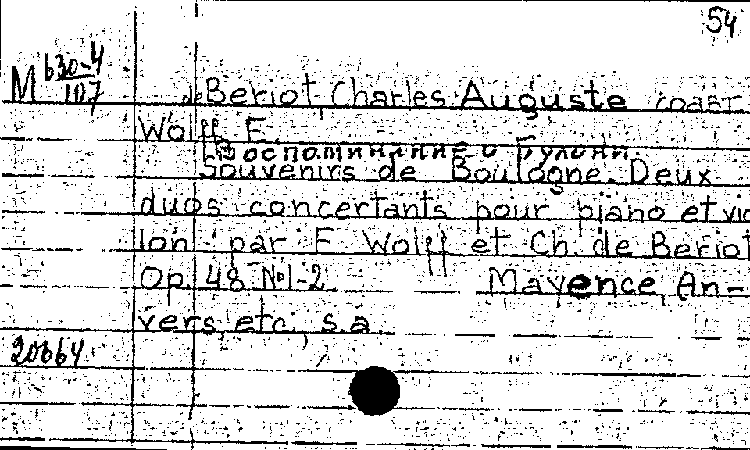 54
M 630-4
107
de Beriot, Charles Auguste соавт.
Wolff E.
Воспоминание о Булони.
Souvenirs de Boulogne. Deux
duos concertants pour piano et vio
lon par E. Wolff et Ch. de Beriot
Op. 48 №1-2 Mayence, An-
vers, etc, s.a.
20664